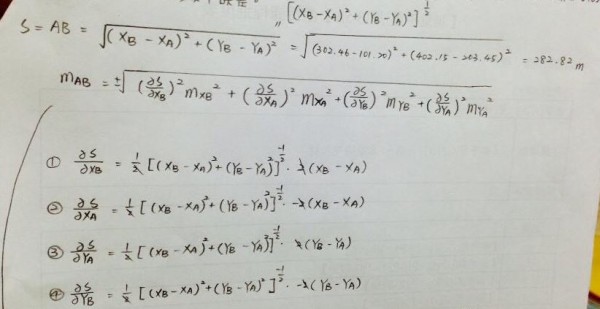 " [(XB-XA)²+(YB-YA)²]^½
S = AB = √(XB-XA)²+(YB-YA)² = √(302.46-101.20)²+(402.15-203.45)² = 282.82 m
mAB = ±√(∂S/∂XB)² mXB² + (∂S/∂XA)² mXA² + (∂S/∂YB)² mYB² + (∂S/∂YA)² mYA²
① ∂S/∂XB = ½ [(XB-XA)²+(YB-YA)²]^-½ · 2(XB-XA)
② ∂S/∂XA = ½ [(XB-XA)²+(YB-YA)²]^-½ · -2(XB-XA)
③ ∂S/∂YA = ½ [(XB-XA)²+(YB-YA)²]^-½ · 2(YB-YA)
④ ∂S/∂YB = ½ [(XB-XA)²+(YB-YA)²]^-½ · -2(YB-YA)